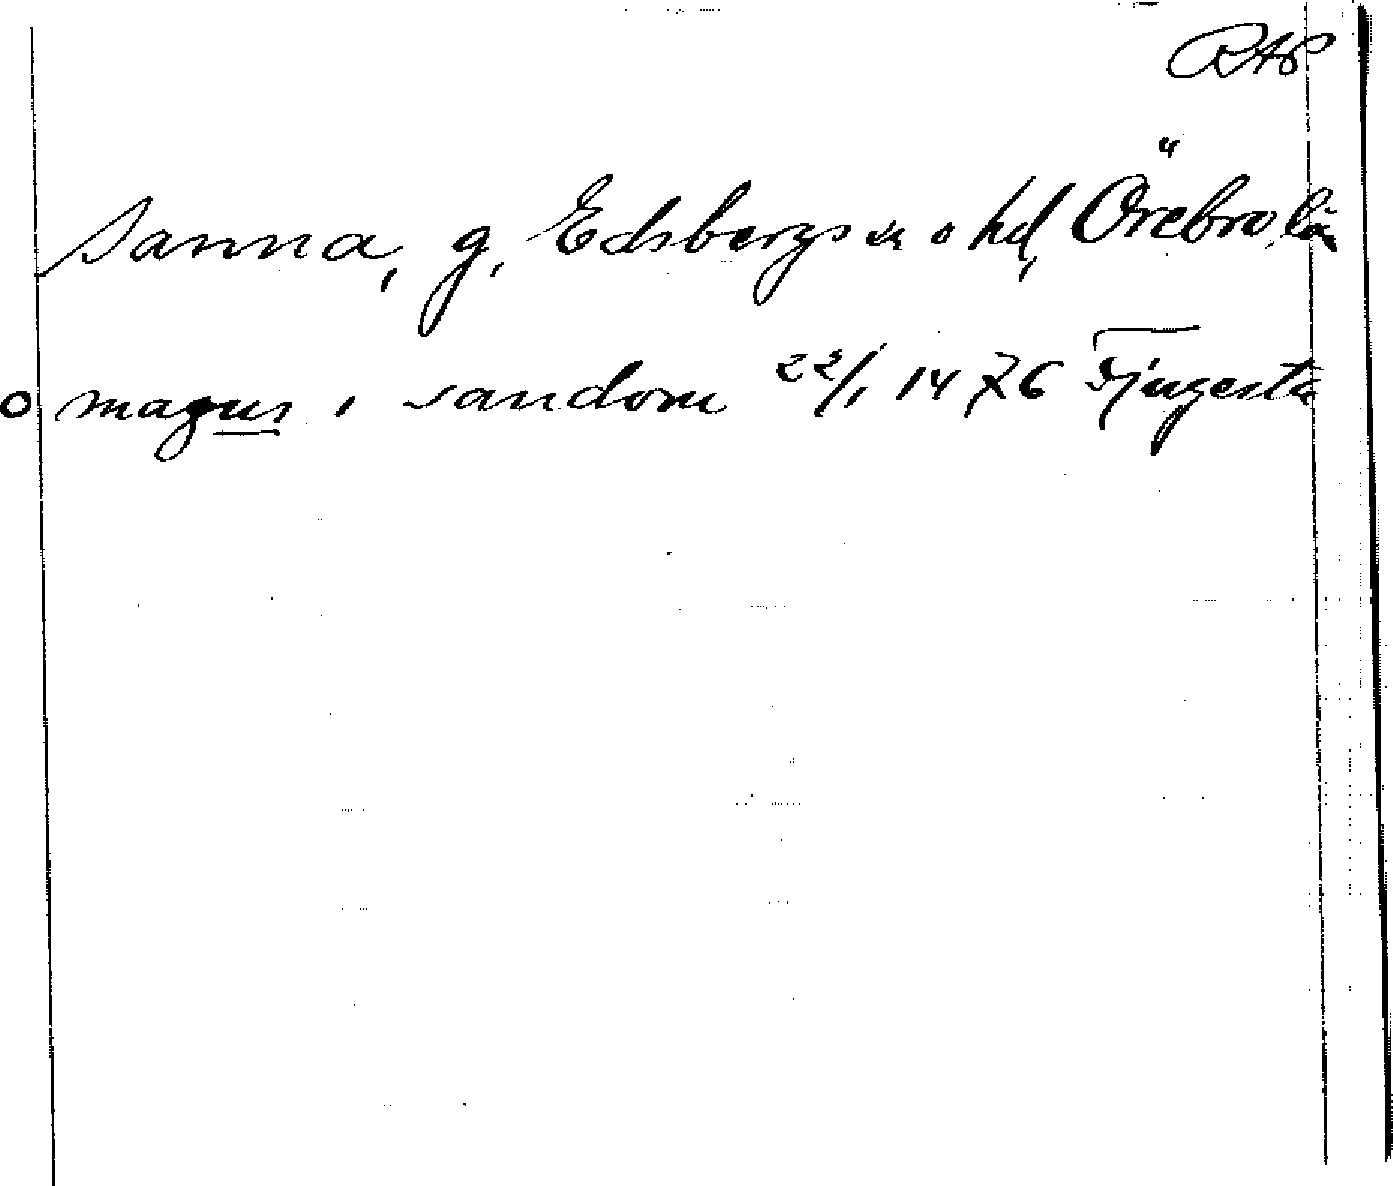 RAP
Sanna, g, Edsbergs sn o hd, Örebro län
o magnus i sandom 22/1 1476 Fjugesta